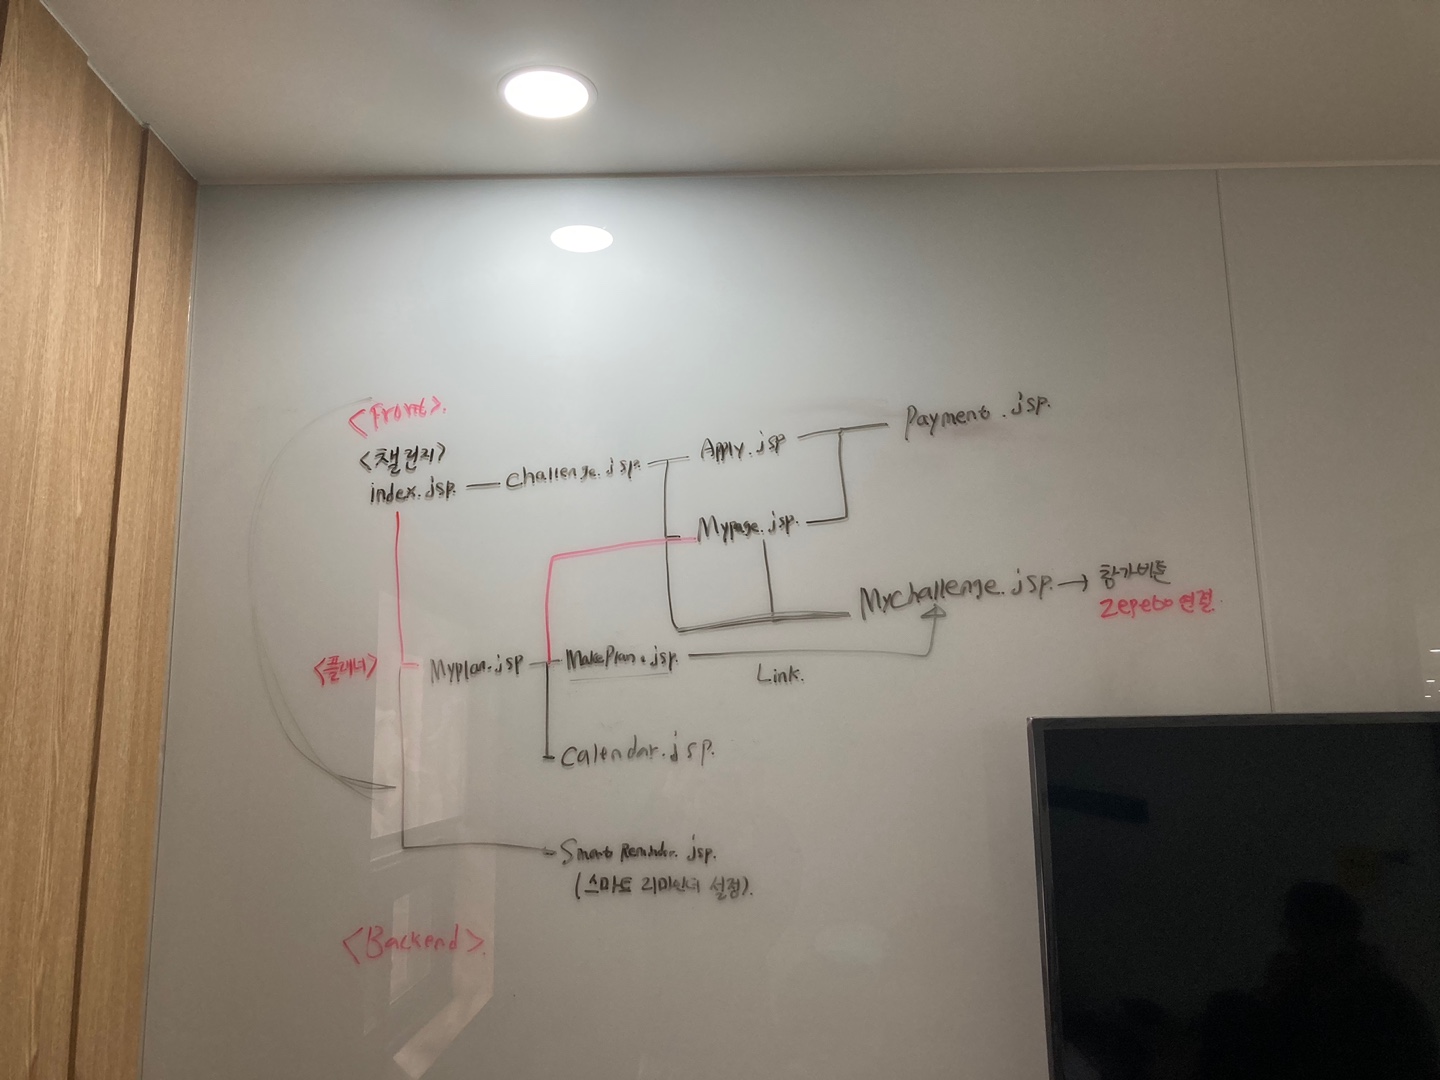 <Front>.
<챌린지>
index.jsp.
challenge.jsp.
Apply.jsp
Payment.jsp.
Mypage.jsp.
Mychallenge.jsp.
참가버튼
Zepeto 연결.
<플래너>
Myplan.jsp
MakePlan.jsp.
Link.
Calendar.jsp.
Smart Reminder.jsp.
(스마트 리마인더 설정).
<Backend>.